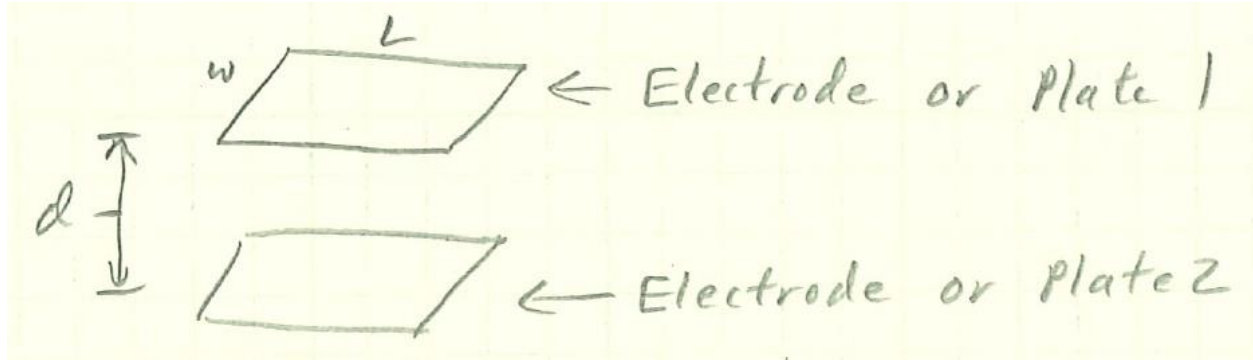 L
w
← Electrode or Plate 1
d
← Electrode or Plate 2